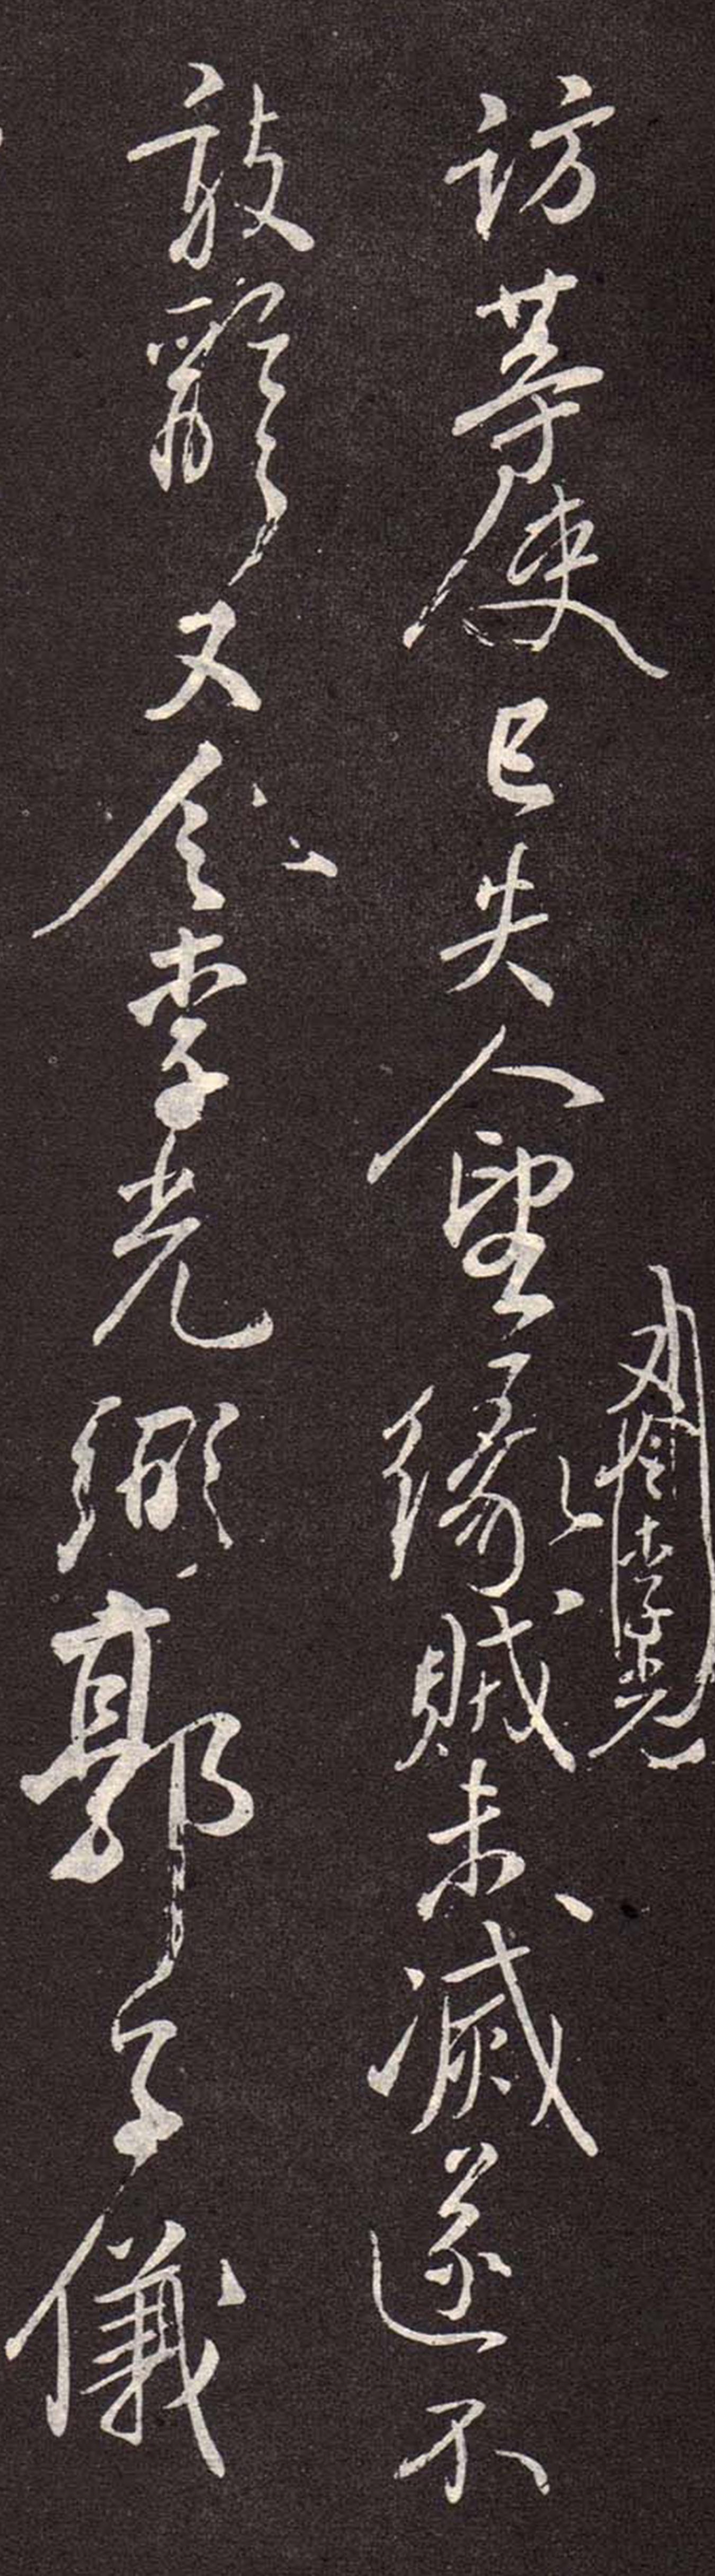 李光
訪等使已失人望緣賊未滅遂不
敢辭又令李光弼郭子儀